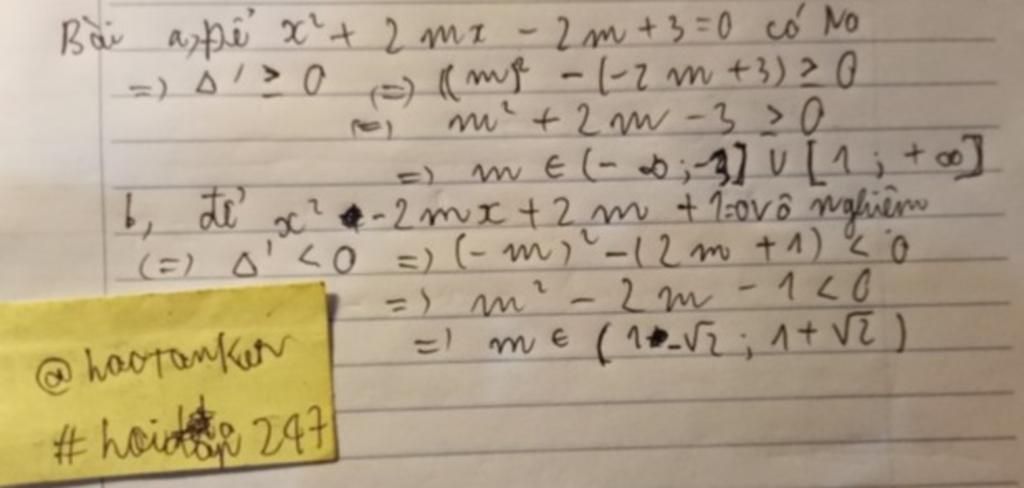 Bài a, để x² + 2mx - 2m + 3 = 0 có No
=) Δ' ≥ 0 (=) (m)² - (-2m + 3) ≥ 0
(=) m² + 2m - 3 ≥ 0
=) m ∈ (-∞; -3] ∪ [1; +∞]
b, để x² - 2mx + 2m + 1 = 0 vô nghiệm
(=) Δ' < 0 =) (-m)² - (2m + 1) < 0
=) m² - 2m - 1 < 0
=) m ∈ (1 - √2; 1 + √2)
@haotanker
# hoidap 247